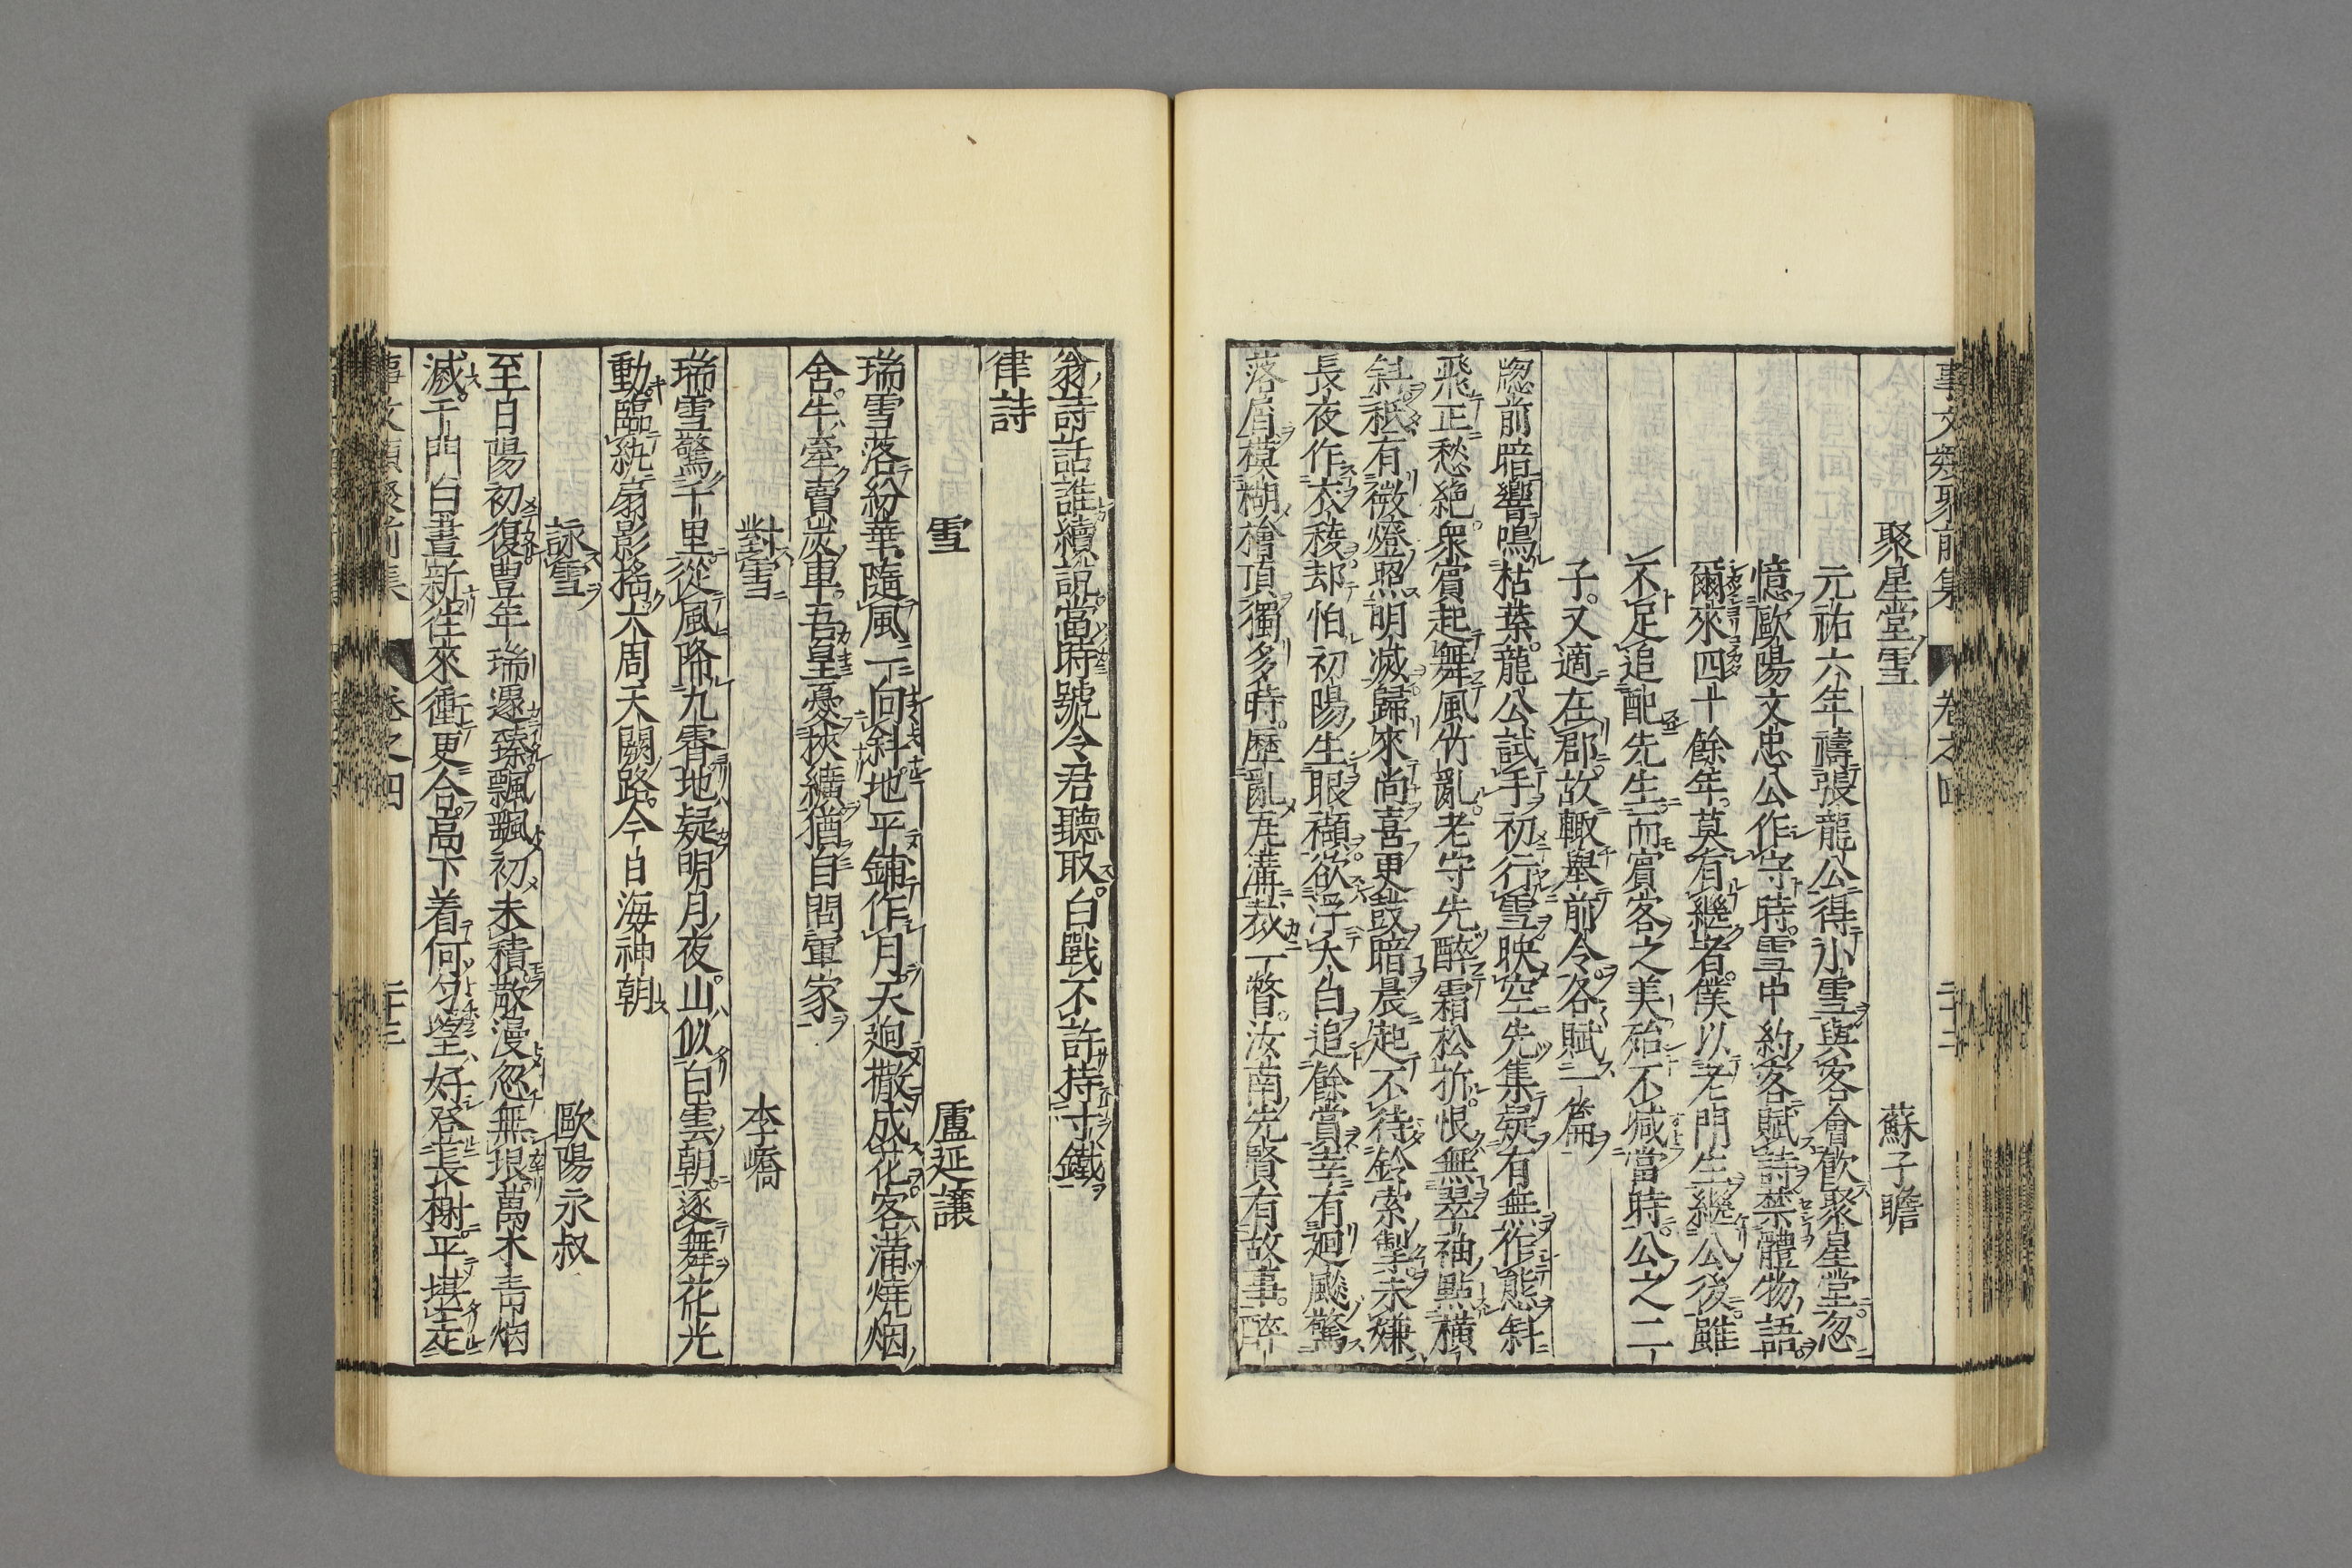 事文類聚前集　卷之四　二十二
聚星堂雪　蘇子瞻
元祐六年禱張龍公得小雪與客會飲聚星堂忽
憶歐陽文忠公作守時雪中約客賦詩禁體物語
爾來四十餘年莫有繼者僕以老門生繼公後雖
不足追配先生而賓客之美殆不減當時公之二
子又適在郡故輙舉前令各賦一篇
窓前暗響鳴枯葉龍公試手初行雪映空先集疑有無作態斜
飛正愁絕衆賓起舞風竹亂老守先醉霜松折恨無翠袖點橫
斜秖有微燈照明滅歸來尚喜更鼓暗晨起不待鈴索掣未嫌
長夜作衣稜却怕初陽生眼纈欲浮大白追餘賞幸有廻飈驚
落屑模糊檜頂獨多時歷亂瓦溝裁一瞥汝南先賢有故事醉
翁詩話誰續說當時號令君聽取白戰不許持寸鐵
律詩
雪　盧延讓
瑞雪落紛華隨風一向斜地平鋪作月天迥撒成花客滿燒烟
舍牛牽賣炭車吾皇憂挾纊猶自問軍家
對雪　李嶠
瑞雪驚千里從風降九霄地疑明月夜山似白雲朝逐舞花光
動臨紈扇影搖大周天闕路今日海神朝
詠雪　歐陽永叔
至日陽初復豊年瑞遝臻飄颻初未積散漫忽無垠萬木青烟
滅千門白晝新往來衝更合高下着何勻望好登長榭平堪走
事文類聚前集　卷之四　二十三